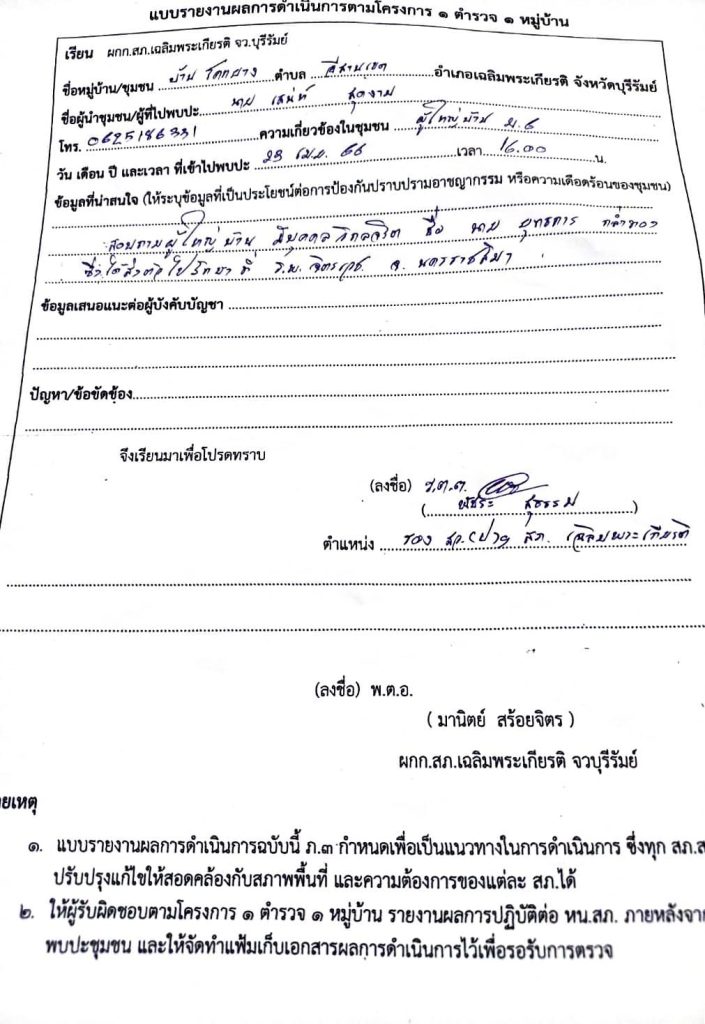 แบบรายงานผลการดำเนินการตามโครงการ ๑ ตำรวจ ๑ หมู่บ้าน
เรียน ผกก.สภ.เฉลิมพระเกียรติ จว.บุรีรัมย์
ชื่อหมู่บ้าน/ชุมชน บ้าน โคกยาง ตำบล อีสานเขต อำเภอเฉลิมพระเกียรติ จังหวัดบุรีรัมย์
ชื่อผู้นำชุมชน/ผู้ที่ไปพบปะ นาย เสน่ห์ สุดงาม
โทร. 0625186331 ความเกี่ยวข้องในชุมชน ผู้ใหญ่บ้าน ม.6
วัน เดือน ปี และเวลา ที่เข้าไปพบปะ 23 เม.ย. 66 เวลา 16.00 น.
ข้อมูลที่น่าสนใจ (ให้ระบุข้อมูลที่เป็นประโยชน์ต่อการป้องกันปราบปรามอาชญากรรม หรือความเดือดร้อนของชุมชน)
สอบถามผู้ใหญ่บ้าน มีบุคคลวิกลจริต ชื่อ นาย ยุทธการ
ซึ่งได้ส่งตัวไปรักษาที่ ร.พ.จิตเวช จ. นครราชสีมา
ข้อมูลเสนอแนะต่อผู้บังคับบัญชา
ปัญหา/ข้อขัดข้อง
จึงเรียนมาเพื่อโปรดทราบ
(ลงชื่อ) ร.ต.ต.
( พัชระ สุธรรม )
ตำแหน่ง รอง สว.(ป.) สภ. เฉลิมพระเกียรติ
(ลงชื่อ) พ.ต.อ.
( มานิตย์ สร้อยจิตร )
ผกก.สภ.เฉลิมพระเกียรติ จวบุรีรัมย์
ายเหตุ
๑. แบบรายงานผลการดำเนินการฉบับนี้ ภ.๓ กำหนดเพื่อเป็นแนวทางในการดำเนินการ ซึ่งทุก สภ.ส
ปรับปรุงแก้ไขให้สอดคล้องกับสภาพพื้นที่ และความต้องการของแต่ละ สภ.ได้
๒. ให้ผู้รับผิดชอบตามโครงการ ๑ ตำรวจ ๑ หมู่บ้าน รายงานผลการปฏิบัติต่อ หน.สภ. ภายหลังจาก
พบปะชุมชน และให้จัดทำแฟ้มเก็บเอกสารผลการดำเนินการไว้เพื่อรอรับการตรวจ